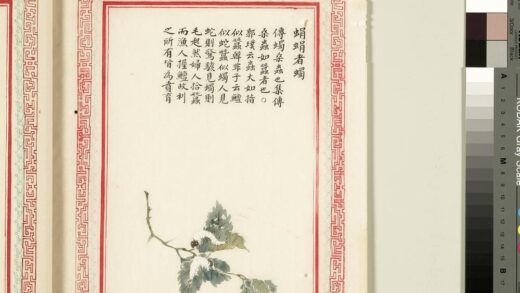 蜎蜎者蠋
傳蠋桑蟲也集傳
桑蟲如蠶者也○
郭璞云蟲大如指
似蠶韓非子云鱣
似蛇蠶似蠋人見
蛇則驚駭見蠋則
毛起然婦人拾蠶
而漁人握鱣故利
之所在皆為賁育
A
M
B